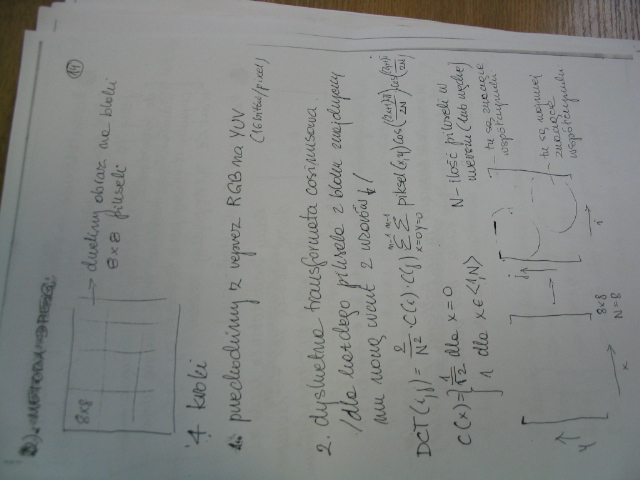 14
8x8
→ dzielimy obraz na bloki
8x8 pikseli
4 kroki
1. przechodzimy z wersji RGB na YUV
(16 bitów/pixel)
2. dyskretna transformata cosinusowa
/dla każdego piksela z bloku znajdujemy
mu nową wart z wzorów/
DCT(i,j) = 2/N² · C(i)·C(j) ∑ ∑ piksel(x,y) cos((2x+1)iπ/2N) cos(
x=0 y=0
C(x) = { 1/√2 dla x=0
1 dla x∈<1,N>
N - ilość pikseli w
wierszu (lub wys
- tu są znaczące
współczynniki
- tu są najmniej
znaczące
współczynniki
y
x
8x8
N=8
j
i